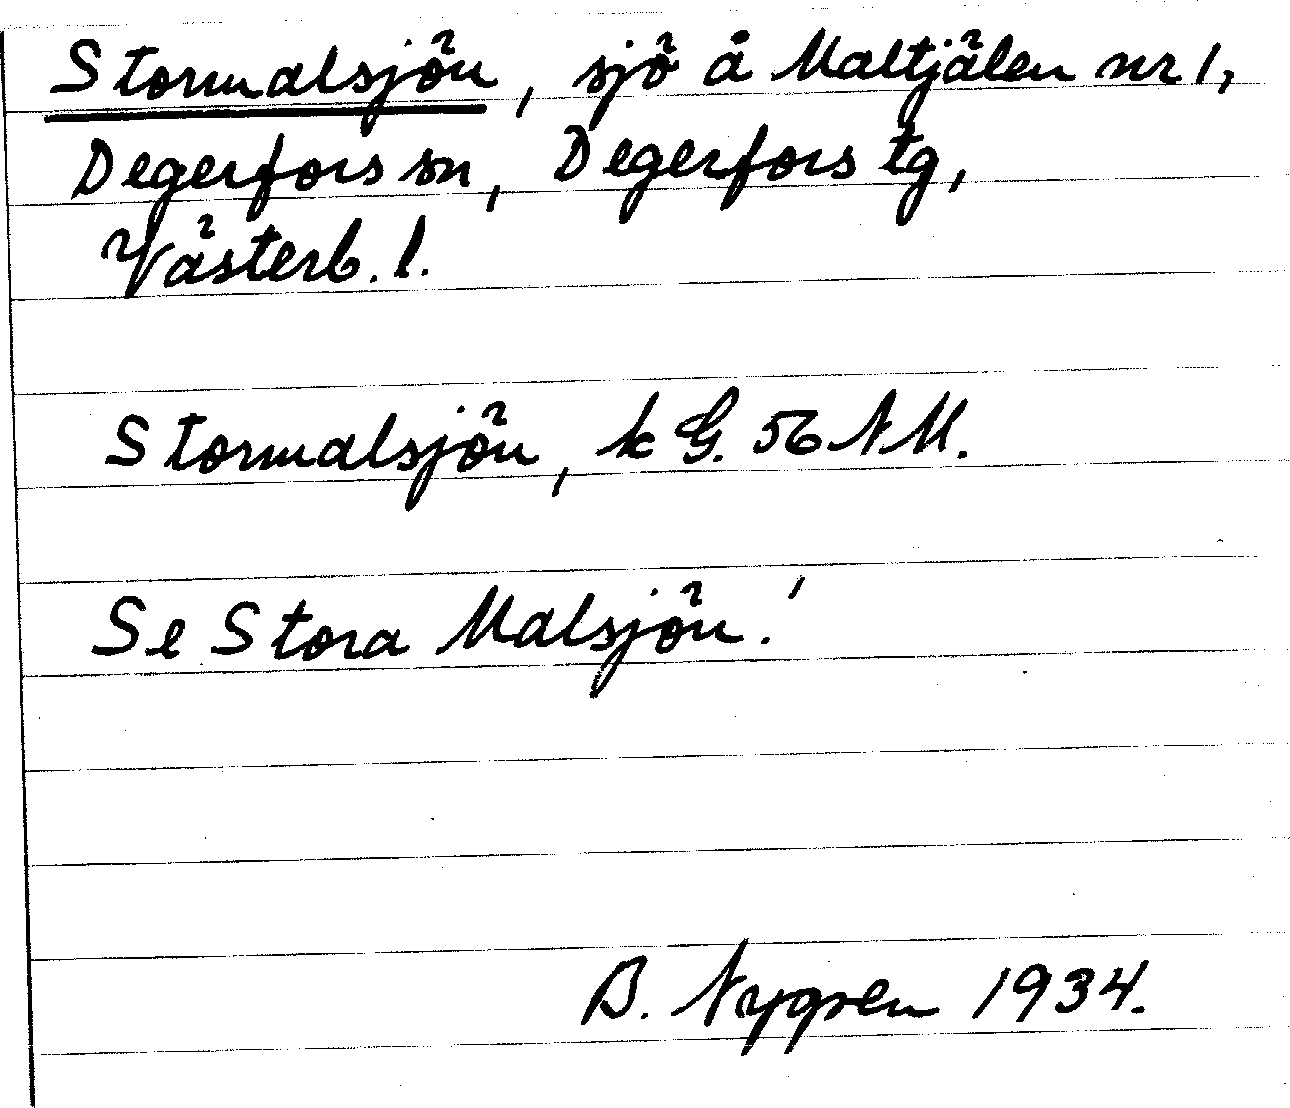 Stormalsjön, sjö å Maltjälen nr 1,
Degerfors sn, Degerfors tg,
Västerb. l.
Stormalsjön, k G. 56 NM.
Se Stora Malsjön!
B. Nygren 1934.